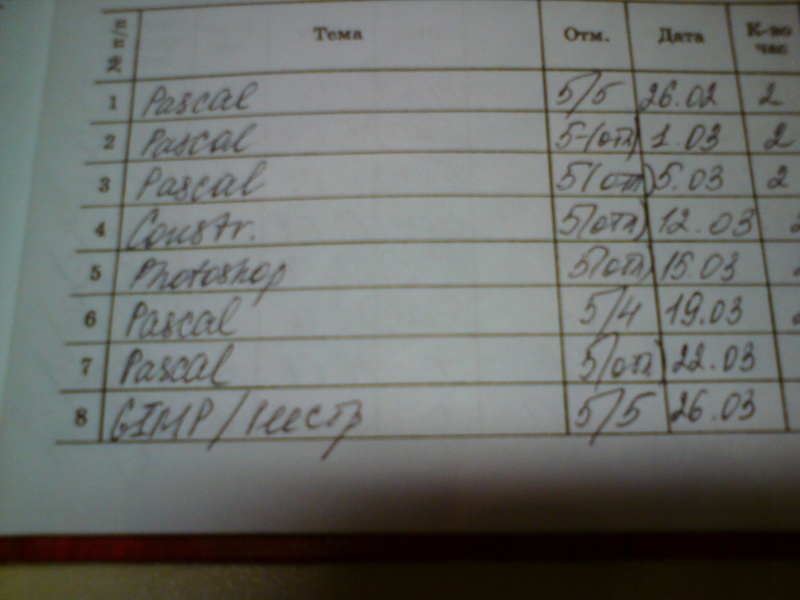 № п/п Тема Отм. Дата К-во час
1 Pascal 5/5 26.02 2
2 Pascal 5-(отл) 1.03 2
3 Pascal 5(отл) 5.03 2
4 Constr. 5(отл) 12.03
5 Photoshop 5(отл) 15.03
6 Pascal 5/4 19.03
7 Pascal 5(отл) 22.03
8 GIMP/ 5/5 26.03